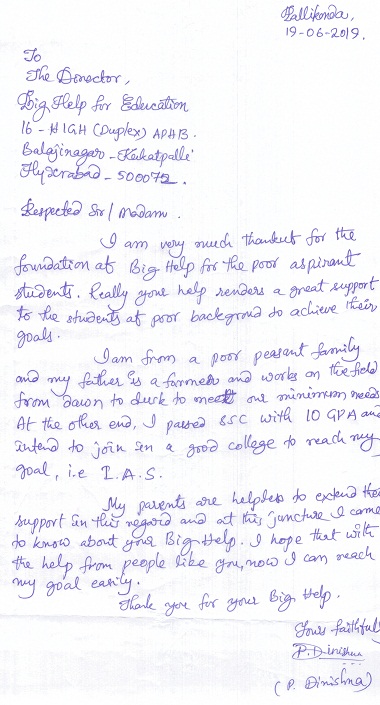 Pallikonda,
19-06-2019.
To
The Director,
Big Help for Education
16 - HIGH (Duplex) APHB.
Balajinagar - Kukatpalle
Hyderabad - 500072.
Respected Sir / Madam.
I am very much thankful for the
foundation of Big Help for the poor aspirant
students. Really your help renders a great support
to the students of poor backgrond to achieve their
goals.
I am from a poor peasant family
and my father is a farmer and works on the field
from dawn to dusk to meet our minimum needs
At the other end, I passed SSC with 10 GPA and
intend to join in a good college to reach my
goal, i.e I.A.S.
My parents are helpless to extend the
support in this regard and at this juncture I came
to know about your Big Help. I hope that with
the help from people like you, now I can reach
my goal easily.
Thank you for your Big Help.
Yours faithfully
P. Dinishna
(P. Dinishna)